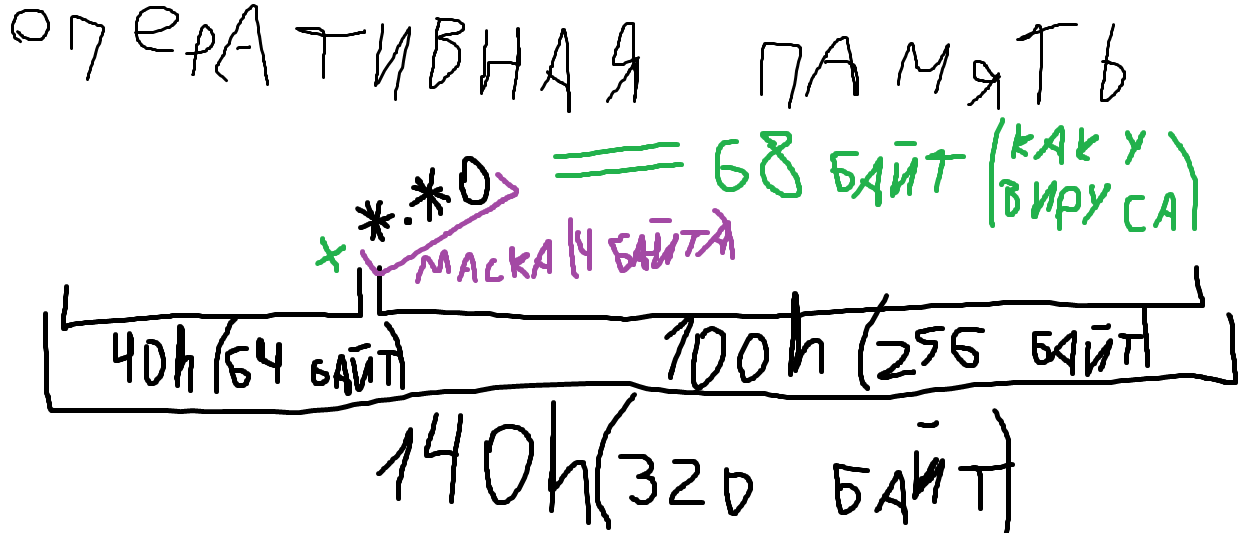 ОПЕРАТИВНАЯ ПАМЯТЬ
*.*0 = 68 БАЙТ (КАК У
ВИРУСА)
+ МАСКА (4 БАЙТА)
40h (64 БАЙТ) 100h (256 БАЙТ)
140h (320 БАЙТ)